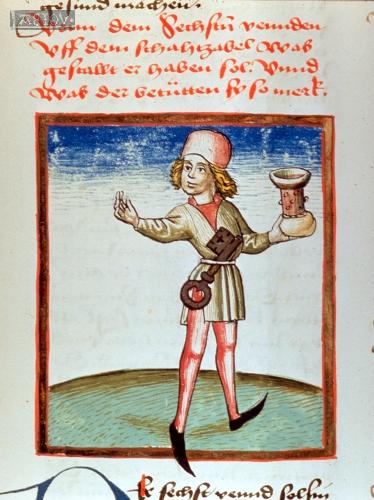 gesund machen.
Von dem Sechsten vennden
Vff dem schachzabel was
gestallt er haben sol. Vnnd
was der betütten sy so merk.
sechst vennd sol